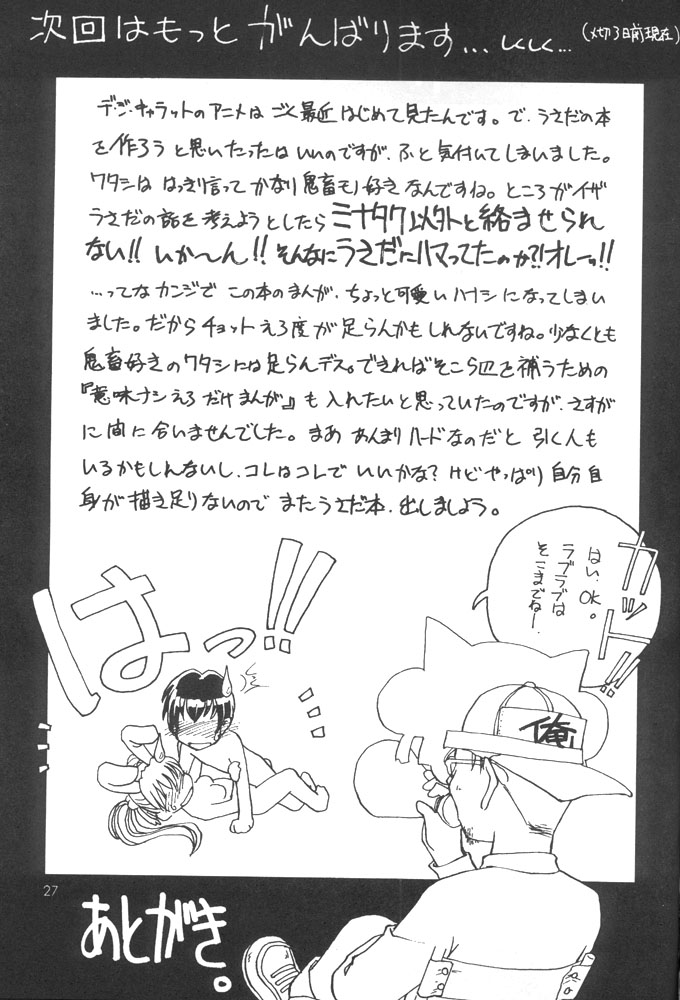 次回はもっとがんばります… しくしく…
(〆切3日前現在)
デ・ジ・キャラットのアニメはごく最近はじめて見たんです。で、うさだの本
を作ろうと思いたったはいいのですが、ふと気付いてしまいました。
ワタシははっきり言ってかなり鬼畜モノ好きなんですね。ところがイザ
うさだの話を考えようとしたらミナタク以外と絡ませられ
ない!! いか〜ん!! そんなにうさだにハマってたのか?! オレーッ!!
…ってなカンジでこの本のまんが、ちょっと可愛いハナシになってしまい
ました。だからチョットえろ度が足らんかもしれないですね。少なくとも
鬼畜好きのワタシには足らんデス。できればそこら辺を補うための
『意味ナシえろだけまんが』も入れたいと思っていたのですが、さすが
に間に合いませんでした。まああんまりハードなのだと引く人も
いるかもしんないし、コレはコレでいいかな? けどやっぱり自分自
身が描き足りないのでまたうさだ本、出しましょう。
カット!!
はい、OK。
ラブラブは
そこまでねー。
はっ!!
俺
27
あとがき。